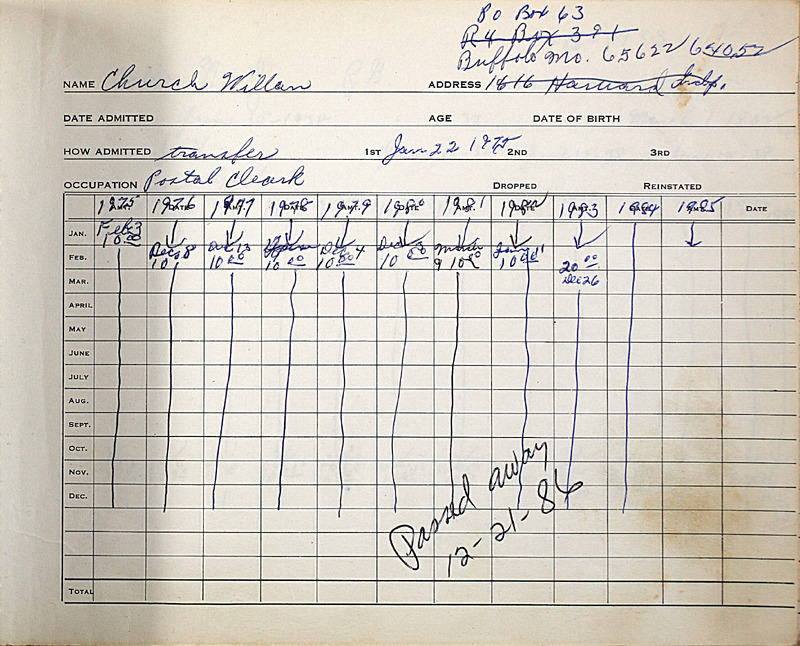 PO Box 63
R4 Box 391
Buffalo Mo. 65622 / 64052
NAME Church Willan ADDRESS 1616 Harvard Indp.
DATE ADMITTED AGE DATE OF BIRTH
HOW ADMITTED transfer 1ST Jan 22 1975 2ND 3RD
OCCUPATION Postal Cleark DROPPED REINSTATED
1975 1976 1977 1978 1979 1980 1981 1982 1983 1984 1985 DATE
JAN. Feb 3
10.00
FEB. Dec 8 Dec 13 Dec 4 Dec March Jan 11
10 10 00 10 00 10 00 9 10 00 10 00 20 00
MAR. Dec 26
APRIL
MAY
JUNE
JULY
AUG.
SEPT.
OCT.
NOV.
DEC.
Passed away
12-21-86
TOTAL